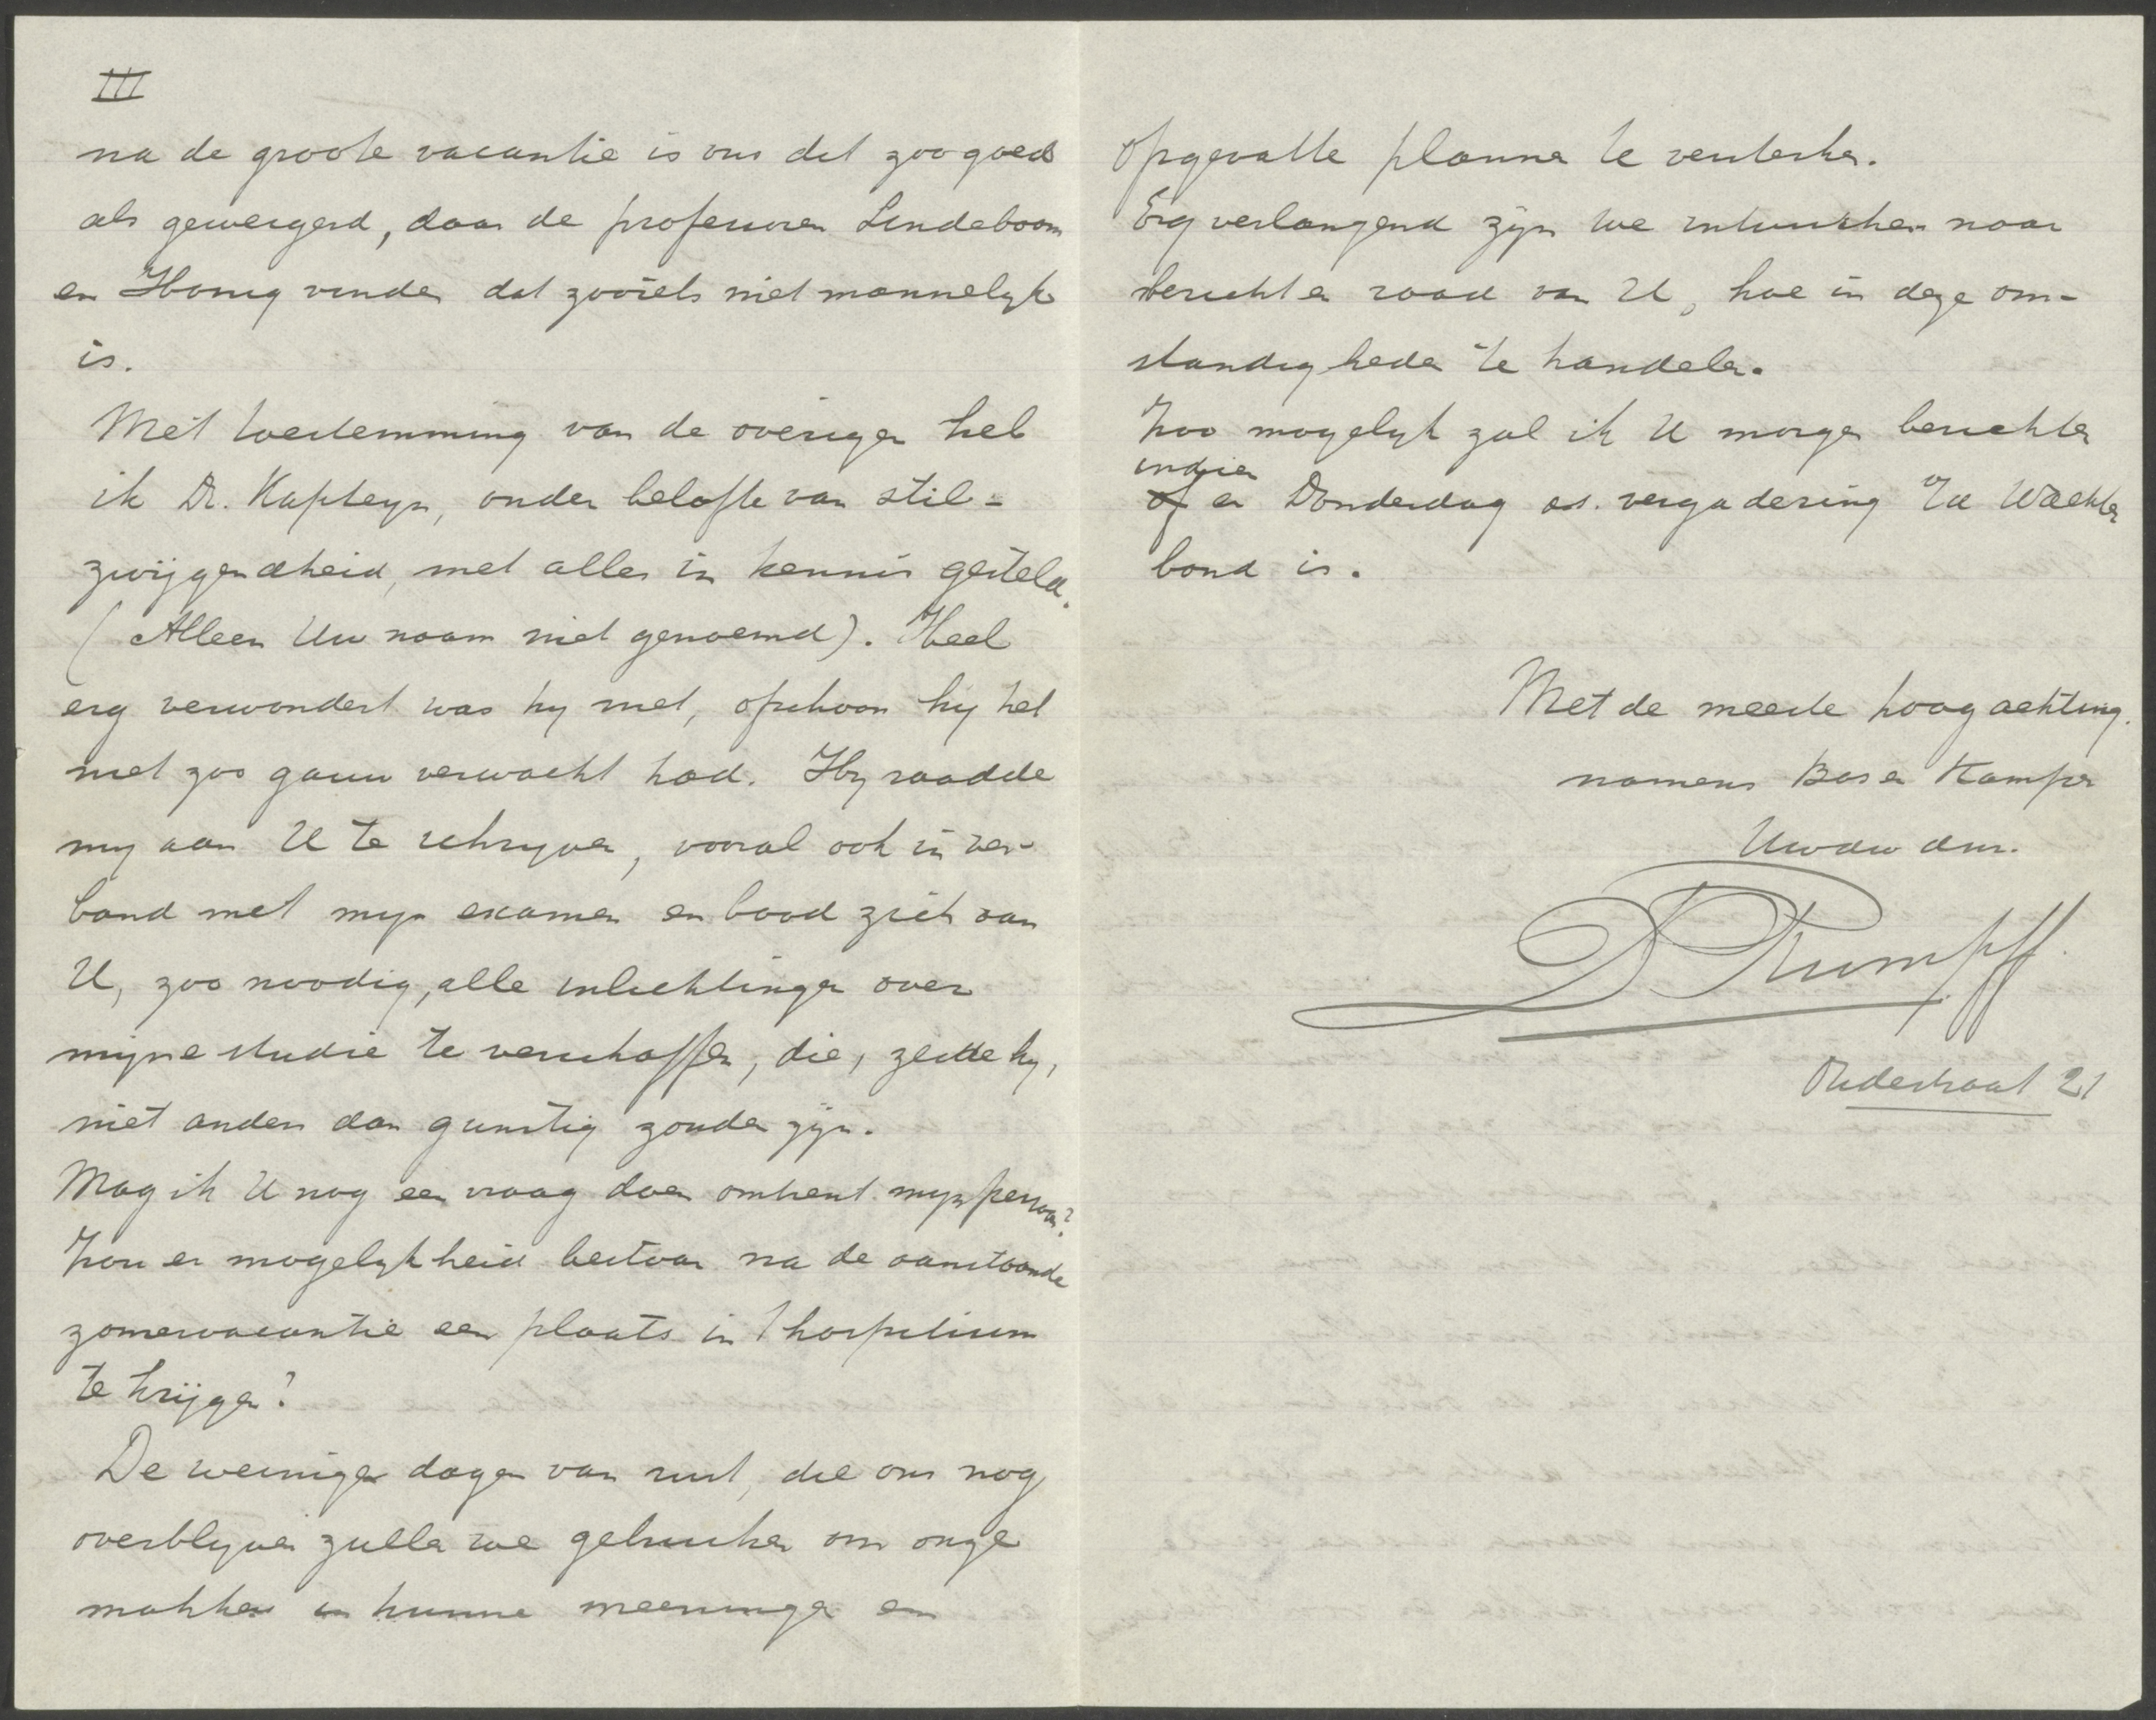 III
na de groote vacantie is ons dit zoo goed
als geweigerd, daar de professoren Lindeboom
en Honig vinden dat zooiets niet mannelyk
is.
Met toestemming van de overigen heb
ik Dr. Kapteyn, onder belofte van stil-
zwijgendheid, met alles in kennis gesteld.
(Alleen Uw naam niet genoemd). Heel
erg verwondert was hy niet, ofschoon hij het
niet zoo gauw verwacht had. Hy raadde
my aan U te schryven, vooral ook in ver-
band met myn examen en bood zich aan
U, zoo noodig, alle inlichtingen over
mijne studie te verschaffen, die, zeide hy,
niet anders dan gunstig zouden zijn.
Mag ik U nog een vraag doen omtrent myn persoon?
Zou er mogelykheid bestaan na de aanstaande
zomervacantie een plaats in 't hospitium
te krijgen?
De weinige dagen van rust, die ons nog
overblyven zullen we gebruiken om onze
makkers in hunne meeningen en
opgevatte plannen te versterken.
Erg verlangend zijn we intusschen naar
bericht en raad van U, hoe in deze om-
standigheden te handelen.
Zoo mogelyk zal ik U morgen berichten
indien
of er Donderdag as. vergadering v/d Wachter
bond is.
Met de meeste hoogachting.
namens Bos en Kamper
Uwdw dnr.
D Rumpff.
Oudestraat 21